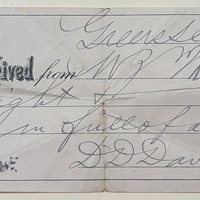 Greens
ived from W Z
ight &
in full of a
D. D. Dav